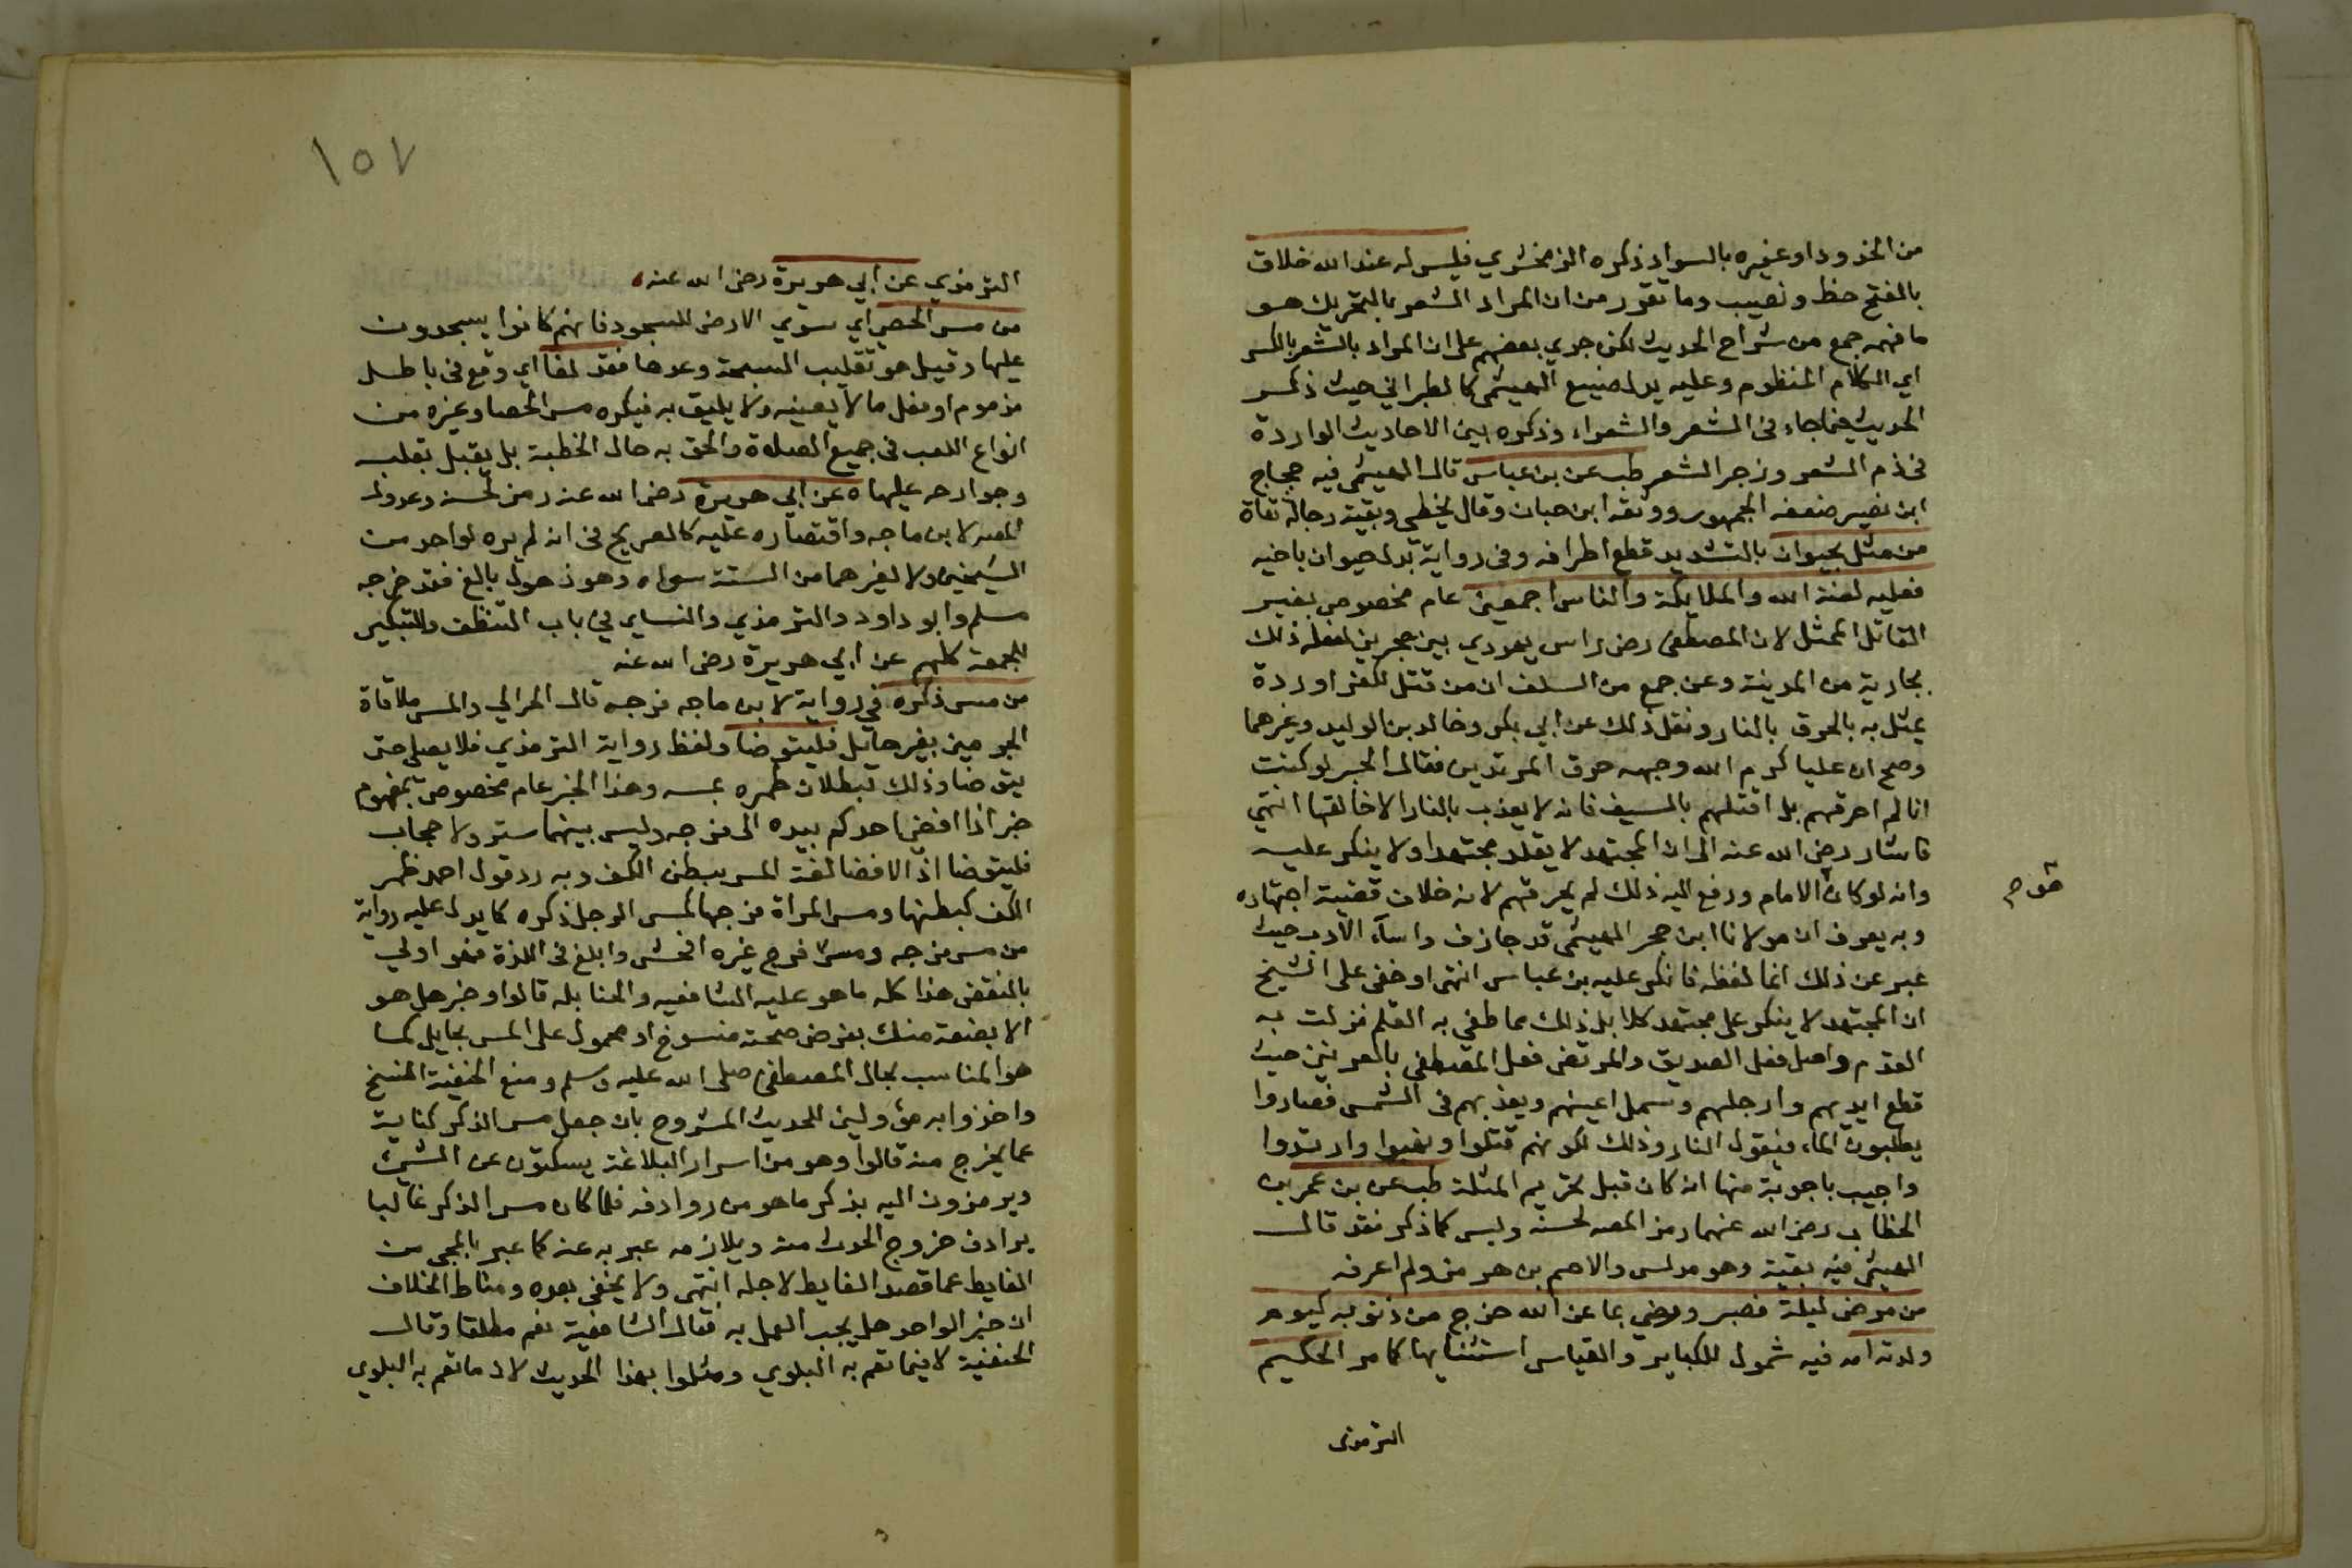 من الخدود او غيره بالسواد ذكره الزمخشري فليس له عند الله خلاق
بالفتح حظ ونصيب وما تقرر من ان المراد الشعر بالتحريك هو
ما فهمه جمع من شراح الحديث لكن جري بعضهم على ان المراد بالشعر بالكسر
اي الكلام المنظوم وعليه يدل صنيع الهيثمى كالطبراني حيث ذكر
الحديث فيما جاء فى الشعر والشعراء وذكره بين الاحاديث الواردة
فى ذم الشعر وزجر الشعر طب عن بن عباس قال الهيثمى فيه حجاج
ابن نصير ضعفه الجمهور ووثقه ابن حبان وقال يخطي وبقية رجاله ثقاة
من مثل بحيوان بالتشديد قطع اطرافه وفى رواية بدل حيوان باخيه
فعليه لعنة الله والملايكة والناس اجمعين عام مخصوص بغير
القاتل الممثل لان المصطفى رض راس يهودي بين حجرين لفعله ذلك
بجارية من المدينة وعن جمع من السلف ان من قتل لكفر او ردة
يمثل به بالحرق بالنار ونقل ذلك عن ابي بكر وخالد بن الوليد وغيرهما
وصح ان عليا كرم الله وجهه حرق المرتدين فقال الحبر لو كنت
انا لم احرقهم بل اقتلهم بالسيف فانه لا يعذب بالنار الا خالقها انتهي
فاشار رضي الله عنه الى ان المجتهد لا يقلد مجتهدا ولا ينكر عليه
وانه لو كان الامام ورفع اليه ذلك لم يحرقهم لانه خلاف قضية اجتهاده
وبه يعرف ان مولانا ابن حجر الهيثمى قد جازف واساء الادب حيث
عبر عن ذلك انما لفظه فانكر عليه بن عباس انتهى او خفى على الشيخ
ان المجتهد لا ينكر على مجتهد كلا بل ذلك مما طغى به القلم فزلت به
القدم واصل فعل الصديق والمرتضى فعل المصطفى بالعرنيين حيث
قطع ايديهم وارجلهم وسمل اعينهم ويعذبهم فى الشمس فصاروا
يطلبون الماء فيقول النار وذلك لكونهم قتلوا ونهبوا وارتدوا
واجيب باجوبة منها انه كان قبل تحريم المثلة طب عن بن عمر بن
الخطاب رضي الله عنهما رمز المصه لحسنه وليس كما ذكر فقد قال
الهيثمى فيه بقية وهو مدلس والاصم بن هرمز ولم اعرفه
من مرض ليلة فصبر ورضي بما عن الله خرج من ذنوبه كيوم
ولدته امه فيه شمول للكباير والقياس استثنايها كما مر الحكيم
الترمذى
١٥٧
الترمذي عن ابي هريرة رضى الله عنه
من مس الحصى اي سوي الارض للسجود فانهم كانوا يسجدون
عليها وقيل هو تقليب السبحة وعدها فقد لغا اي وقع فى باطل
مذموم او فعل ما لا يعينه ولا يليق به فيكره مس الحصا وغيره من
انواع اللعب فى جميع الصلاة والحق به حال الخطبة بل يقبل بقلبه
وجوارحه عليها ه عن ابي هريرة رضى الله عنه رمز لحسنه وعدول
المصه لابن ماجه واقتصاره عليه كالصريح فى انه لم يره لواحد من
الشيخين ولا لغيرهما من الستة سواه وهو ذهول بالغ فقد خرجه
مسلم وابو داود والترمذي والنساي في باب التنظف والتبكير
للجمعة كلهم عن ابي هريرة رضى الله عنه
من مس ذكره في رواية لابن ماجه فرجه قال الحرالي والمس ملاقاة
الجرمين بغير حايل فليتوضا ولفظ رواية الترمذي فلا يصلى حتى
يتوضا وذلك لبطلان طهره بمسه وهذا الخبر عام مخصوص بمفهوم
خبر اذا افضى احدكم بيده الى فرجه وليس بينهما ستر ولا حجاب
فليتوضا اذ الافضا لغة المس ببطن الكف وبه رد قول احمد ظهر
الكف كبطنها ومس المراة فرجها كمس الرجل ذكره كما يدل عليه رواية
من مس فرجه ومس فرج غيره افحش وابلغ فى اللذة فهو اولي
بالنقض هذا كله ما هو عليه الشافعيه والحنابله قالوا وخبر هل هو
الا بضعة منك بفرض صحته منسوخ او محمول على المس بحايل كما
هو المناسب بحال المصطفى صلى الله عليه وسلم ومنع الحنفية النسخ
واخذوا به مؤولين للحديث المشروح بان جعل مس الذكر كناية
عما يخرج منه قالوا وهو من اسرار البلاغة يسكتون عن الشيئ
ويرمزون اليه بذكر ما هو من روادفه فلما كان مس الذكر غالبا
يرادف خروج الحدث منه ويلازمه عبر به عنه كما عبر بالمجي من
الغايط عما قصد الغايط لاجله انتهى ولا يخفى بعده ومناط الخلاف
ان خبر الواحد هل يجب العمل به فقال الشافعية نعم مطلقا وقال
الحنفية لا فيما تعم به البلوي ومثلوا بهذا الحديث لان ما تعم به البلوي